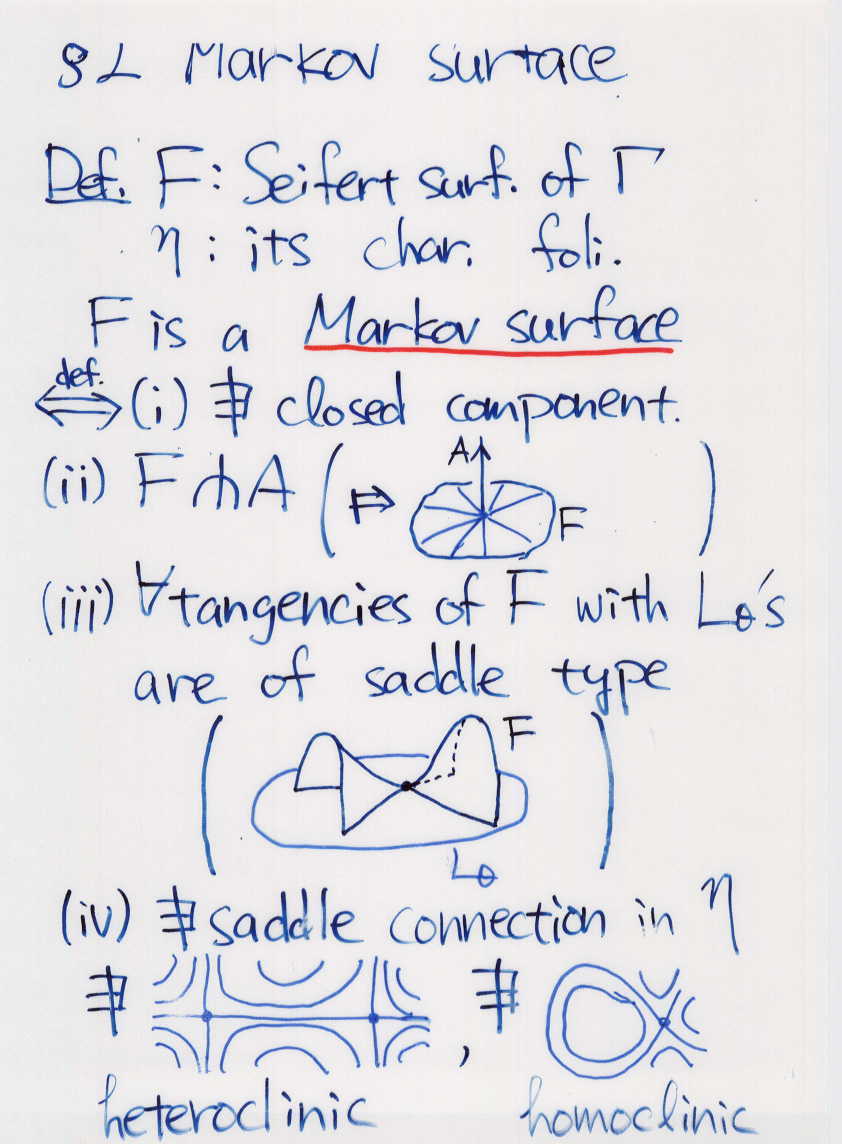 §1 Markov surface
Def. F: Seifert surf. of Γ
η: its char. foli.
F is a Markov surface
⇔def. (i) ∄ closed component.
(ii) F ⋔ A ( ⇒ A F )
(iii) ∀tangencies of F with Lθ's
are of saddle type
( F Lθ )
(iv) ∄ saddle connection in η
∄ , ∄
heteroclinic homoclinic